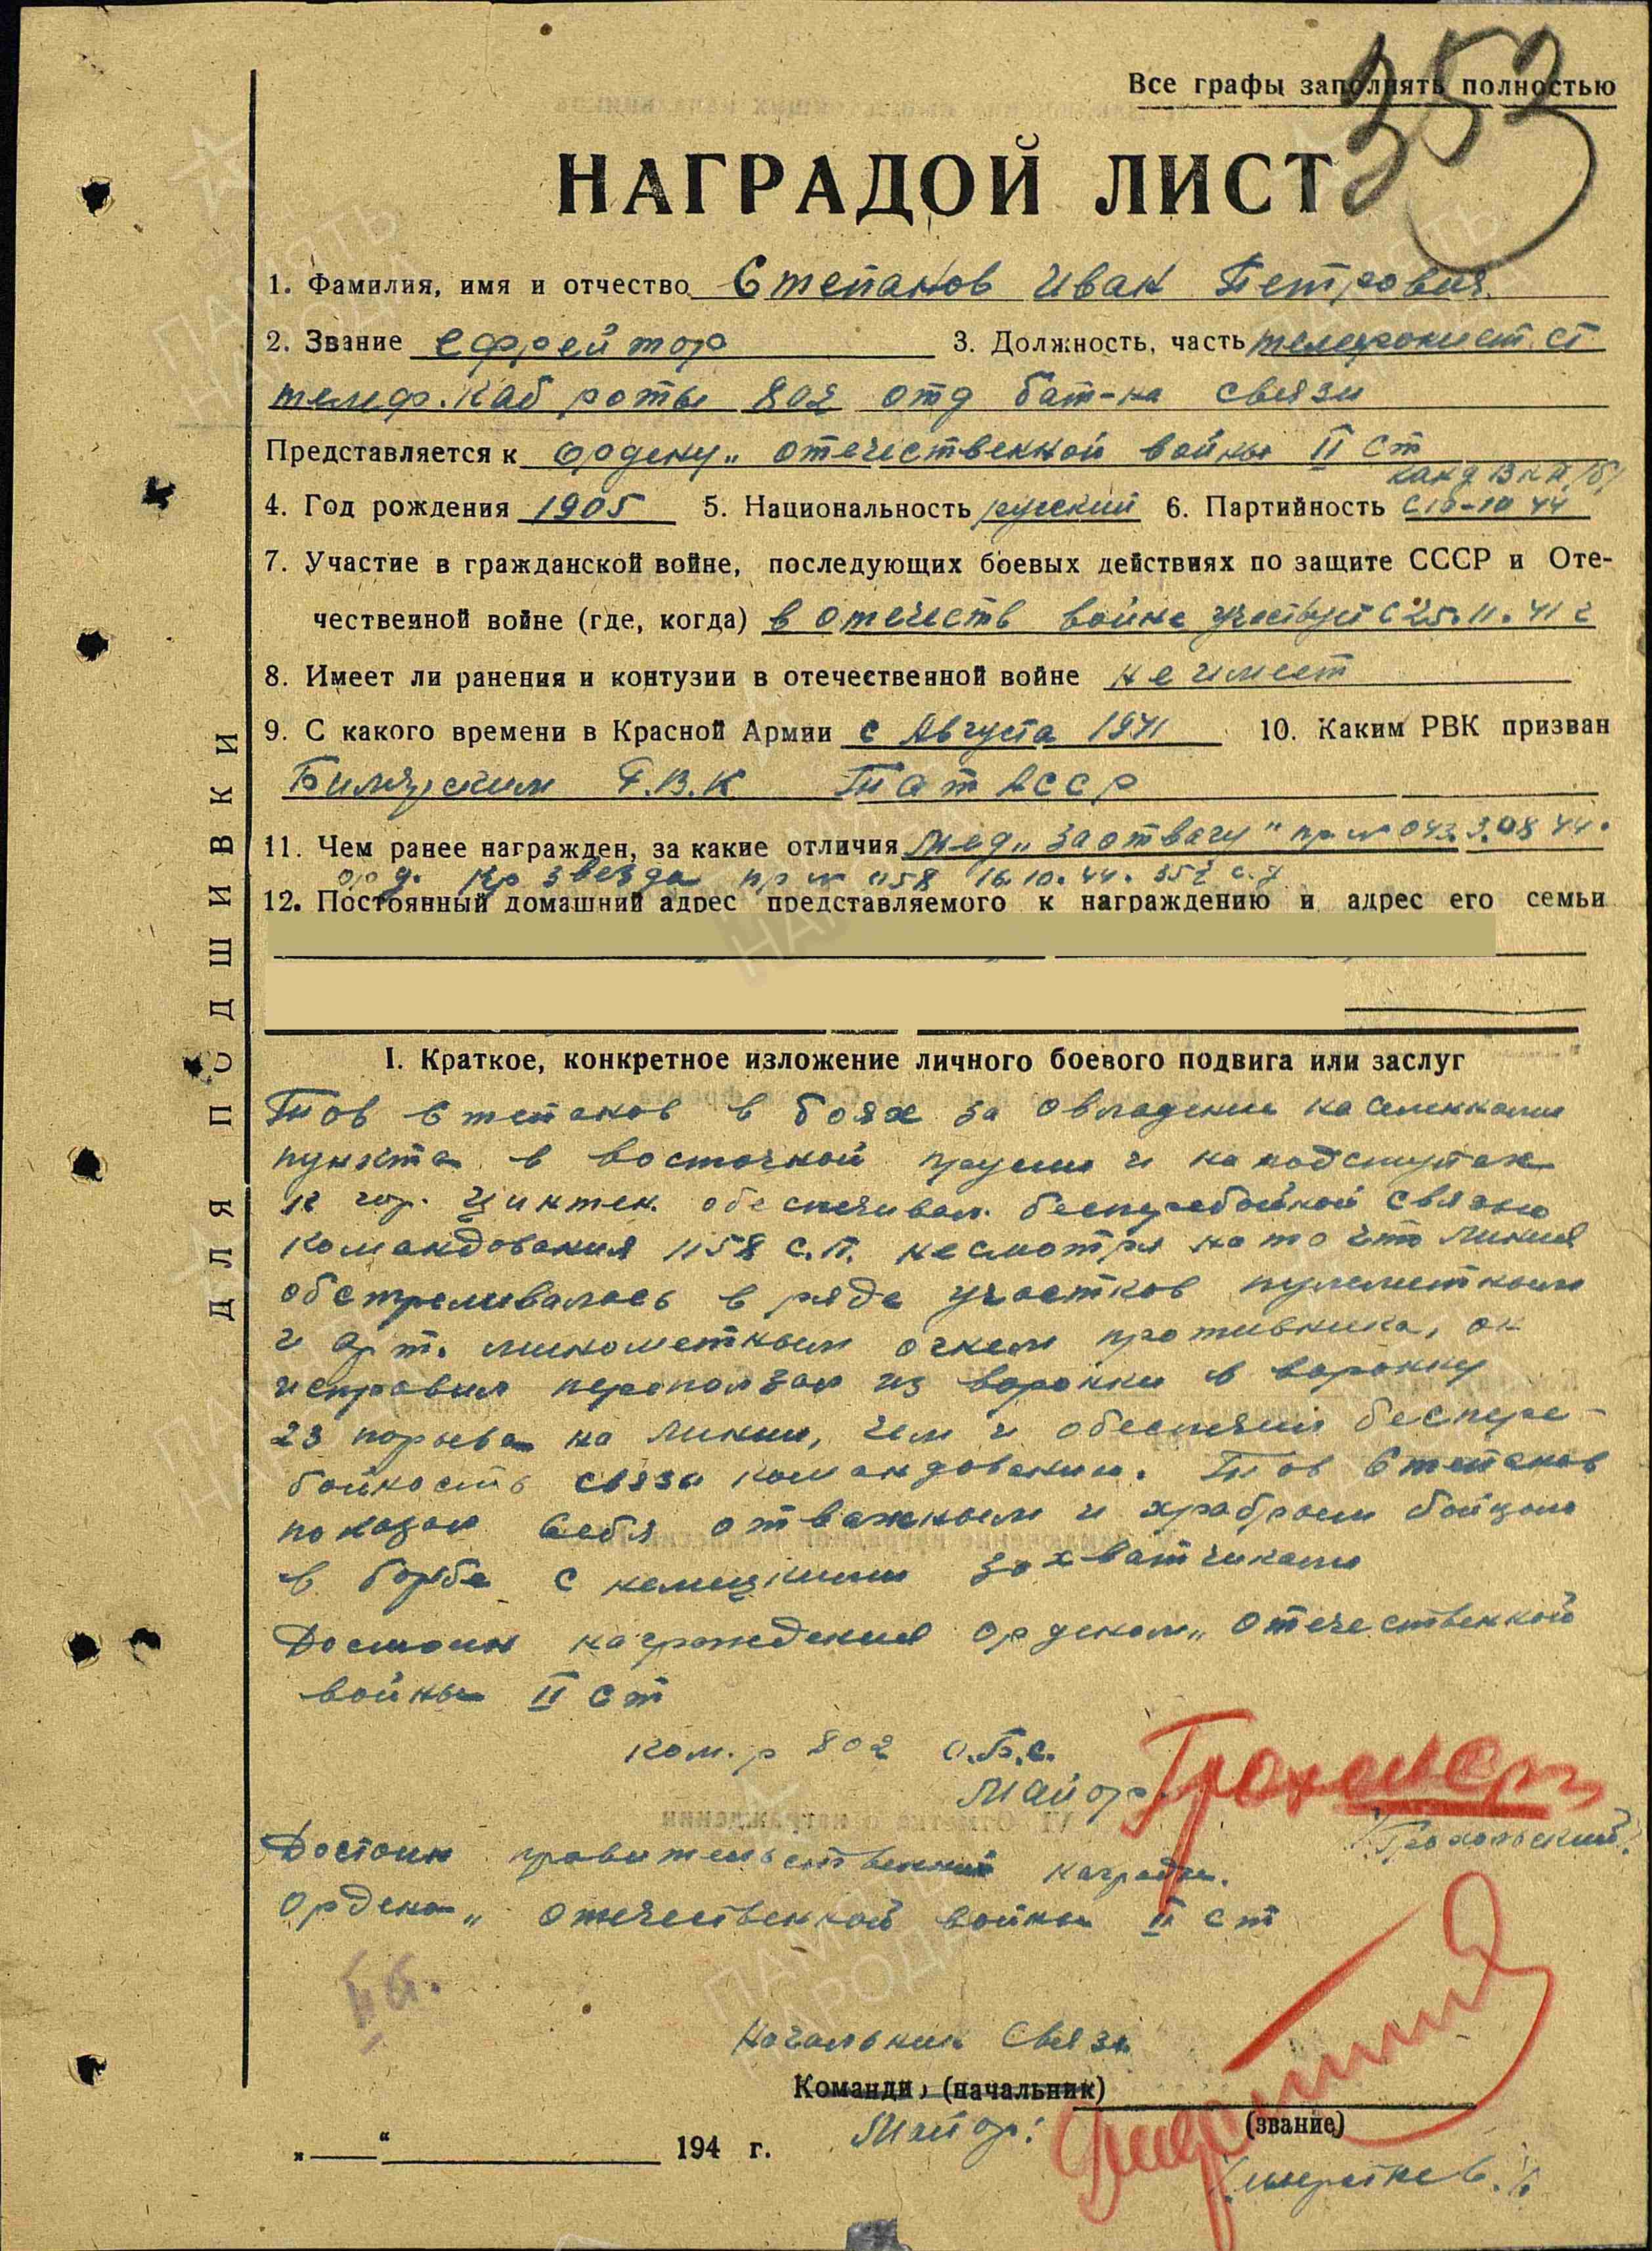 353
Все графы заполнять полностью
НАГРАДОЙ ЛИСТ
1. Фамилия, имя и отчество Степанов Иван Петрович
2. Звание ефрейтор 3. Должность, часть телефонист ст
телеф. каб роты 802 отд бат-на связи
Представляется к ордену „Отечественной войны II ст
канд ВКП/б/
4. Год рождения 1905 5. Национальность русский 6. Партийность с 10-10 44
7. Участие в гражданской войне, последующих боевых действиях по защите СССР и Оте-
чественной войне (где, когда) в отечеств войне участвует с 25.11.41 г
8. Имеет ли ранения и контузии в отечественной войне не имеет
9. С какого времени в Красной Армии с Августа 1941 10. Каким РВК призван
Билярским Р.В.К ТатАССР
11. Чем ранее награжден, за какие отличия мед „За отвагу" пр № 043. 3.08 44.
орд. Кр звезда пр № 058 16.10.44. 352 с.д
12. Постоянный домашний адрес представляемого к награждению и адрес его семьи
I. Краткое, конкретное изложение личного боевого подвига или заслуг
Тов Степанов в боях за овладение населенными
пункта в восточной пруссии и на подступах
к гор. Цинтен. обеспечивал бесперебойной связью
командования 1158 с.п. несмотря на то что линия
обстреливалась в ряде участков пулеметным
и арт. минометным огнем противника, он
исправил переползая из воронки в воронку
23 порыва на линии, чем и обеспечил беспере-
бойность связи командованию. Тов Степанов
показал себя отважным и храбрым бойцом
в борьбе с немецкими захватчиками
Достоин награждения орденом „Отечественной
войны II ст
Ком.р 802 О.Б.С.
Майор
/Трохольский/
Достоин правительственной награды.
Ордена „Отечественной войны II ст
Начальник Связи
Команди (начальник)
Майор:
(звание)
„ “ 194 г.
ДЛЯ ПОДШИВКИ
ПАМЯТЬ НАРОДА